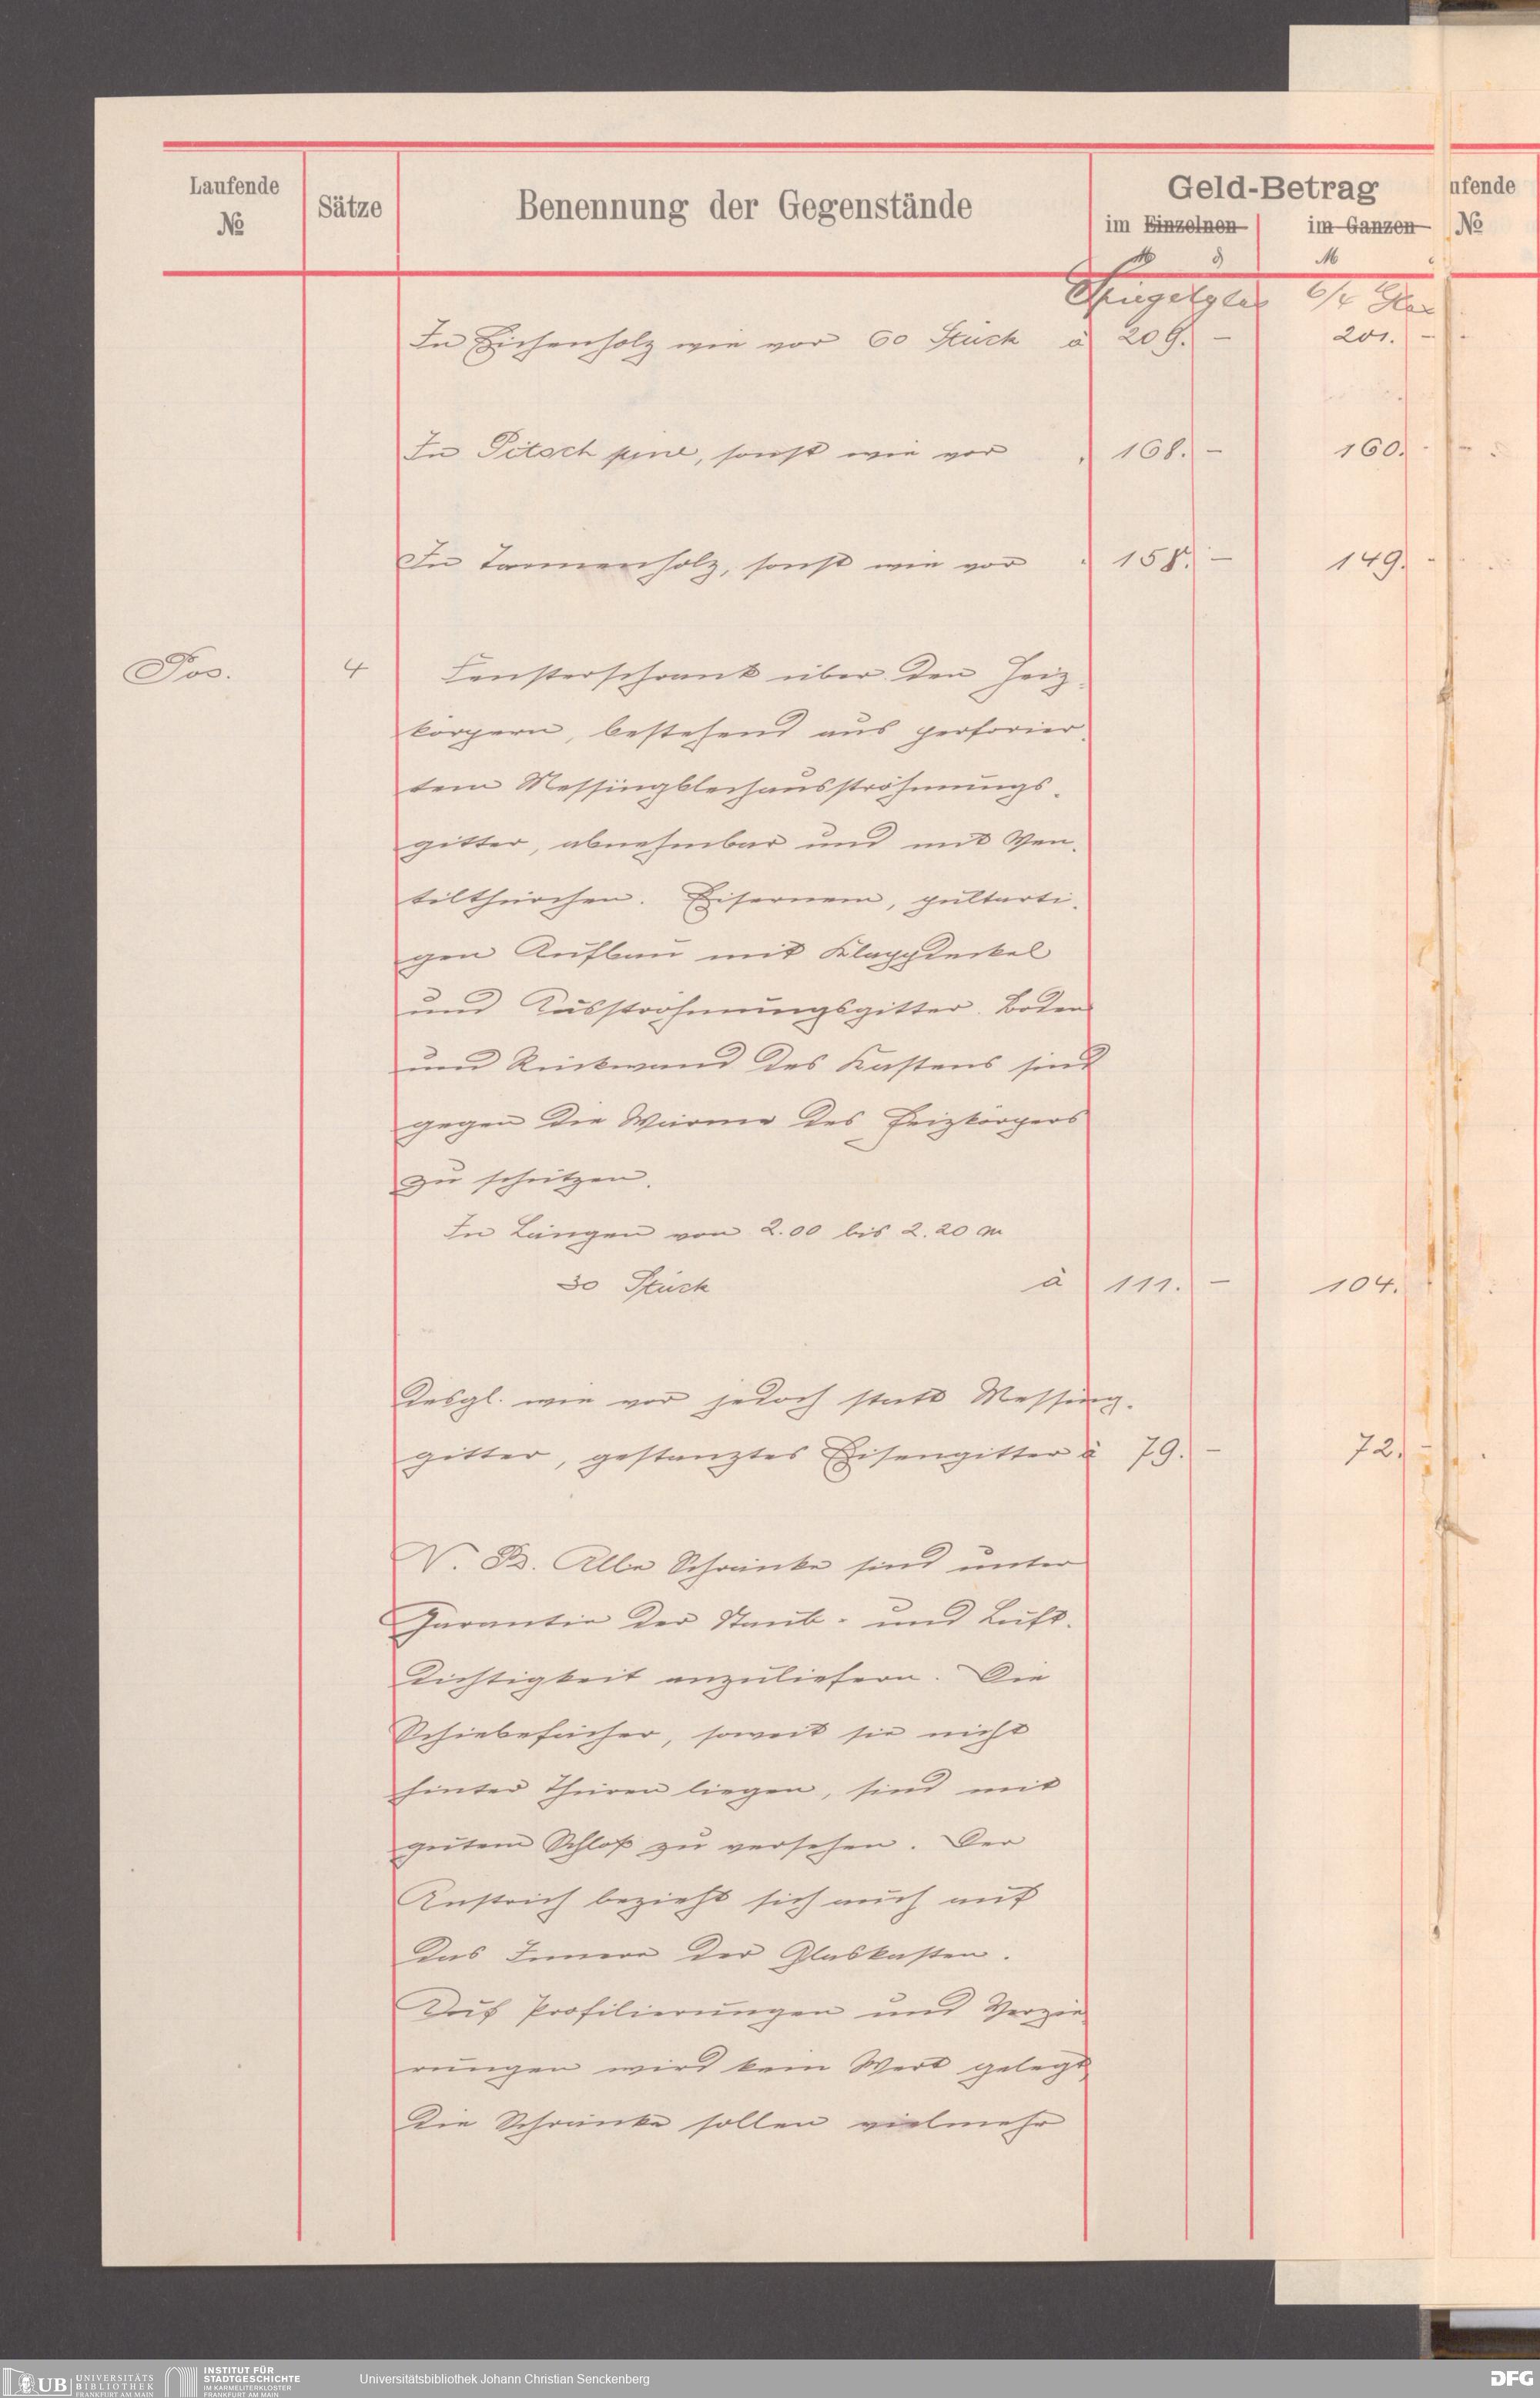 Laufende
№
Sätze
Benennung der Gegenstände
Geld-Betrag
im Einzelnen
im Ganzen
ufende
№
M
Spiegelglas 6/4 Glas
In Eichenholz wie vor 60 Stück à 209. – 201. –
In Pitsch pine, sonst wie vor " 168. – 160. –
In Tannenholz, sonst wie vor " 158. – 149. –
Pos. 4 Fensterschrank über den Heiz-
körpern, bestehend aus perforier-
tem Messingblechausströhmungs-
gitter, abnehmbar und mit Ven-
tilthürchen. Eisernem, pultarti-
gen Aufbau mit Klappdeckel
und Ausströhmungsgitter. Boden
und Rückwand des Kastens sind
gegen die Wärme des Heizkörpers
zu schützen.
In Längen von 2.00 bis 2.20 m
30 Stück à 111. – 104.
Desgl. wie vor jedoch statt Messing-
gitter, gestanztes Eisengitter à 79. – 72. –
N. B. Alle Schränke sind unter
Garantie der Staub- und Luft-
dichtigkeit anzuliefern. Die
Schiebefächer, soweit sie nicht
hinter Thüren liegen, sind mit
gutem Schloß zu versehen. Der
Anstrich bezieht sich auch auf
das Innere der Glaskasten.
Auf Profilierungen und Verzie-
rungen wird kein Wert gelegt
die Schränke sollen vielmehr
UB
UNIVERSITÄTS
BIBLIOTHEK
FRANKFURT AM MAIN
INSTITUT FÜR
STADTGESCHICHTE
IM KARMELITERKLOSTER
FRANKFURT AM MAIN
Universitätsbibliothek Johann Christian Senckenberg
DFG